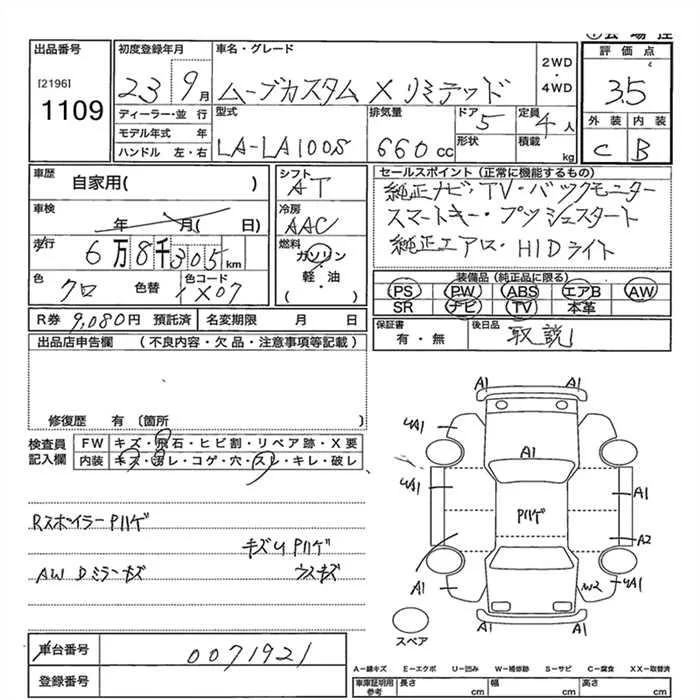 出品番号
[2196]
1109
初度登録年月
23 9月
ディーラー・並行
モデル年式 年
ハンドル 左・右
車名・グレード
ムーブカスタム X リミテッド
2WD
・
4WD
型式
LA-LA100S
排気量
660cc
ドア
5
形状
定員
4人
積載
kg
評価点
3.5
外装 内装
C B
車歴
自家用( )
車検
年 月( 日)
走行
6万8千305km
色
クロ
色替
色コード
X07
シフト
AT
冷房
AAC
燃料
ガソリン
軽・油
( ・ )
セールスポイント(正常に機能するもの)
純正ナビ・TV・バックモニター
スマートキー・プッシュスタート
純正エアロ・HIDライト
装備品(純正品に限る)
PS PW ABS エアB AW
SR ナビ TV 本革
R券 9,080円 預託済 名変期限 月 日
保証書
有・無
後日品
取説
出品店申告欄 (不良内容・欠品・注意事項等記載)
修復歴 有 〔箇所 〕
検査員
記入欄
FW キズ・飛石・ヒビ割・リペア跡・X要
内装 キズ・汚レ・コゲ・穴・スレ・キレ・破レ
Rスポイラー Pハゲ
キズ U Pハゲ
AW Dミラーキズ
ウスキズ
A1 A1
UA1
A1
UA1
A1
Pハゲ
A2
A1
W2
UA1
A1 A1
スペア
車台番号
0071921
登録番号
A-線キズ E-エクボ U-凹み W-補修跡 S-サビ C-腐食 XX-取替済
車庫証明用
参考
長さ cm
幅 cm
高さ cm